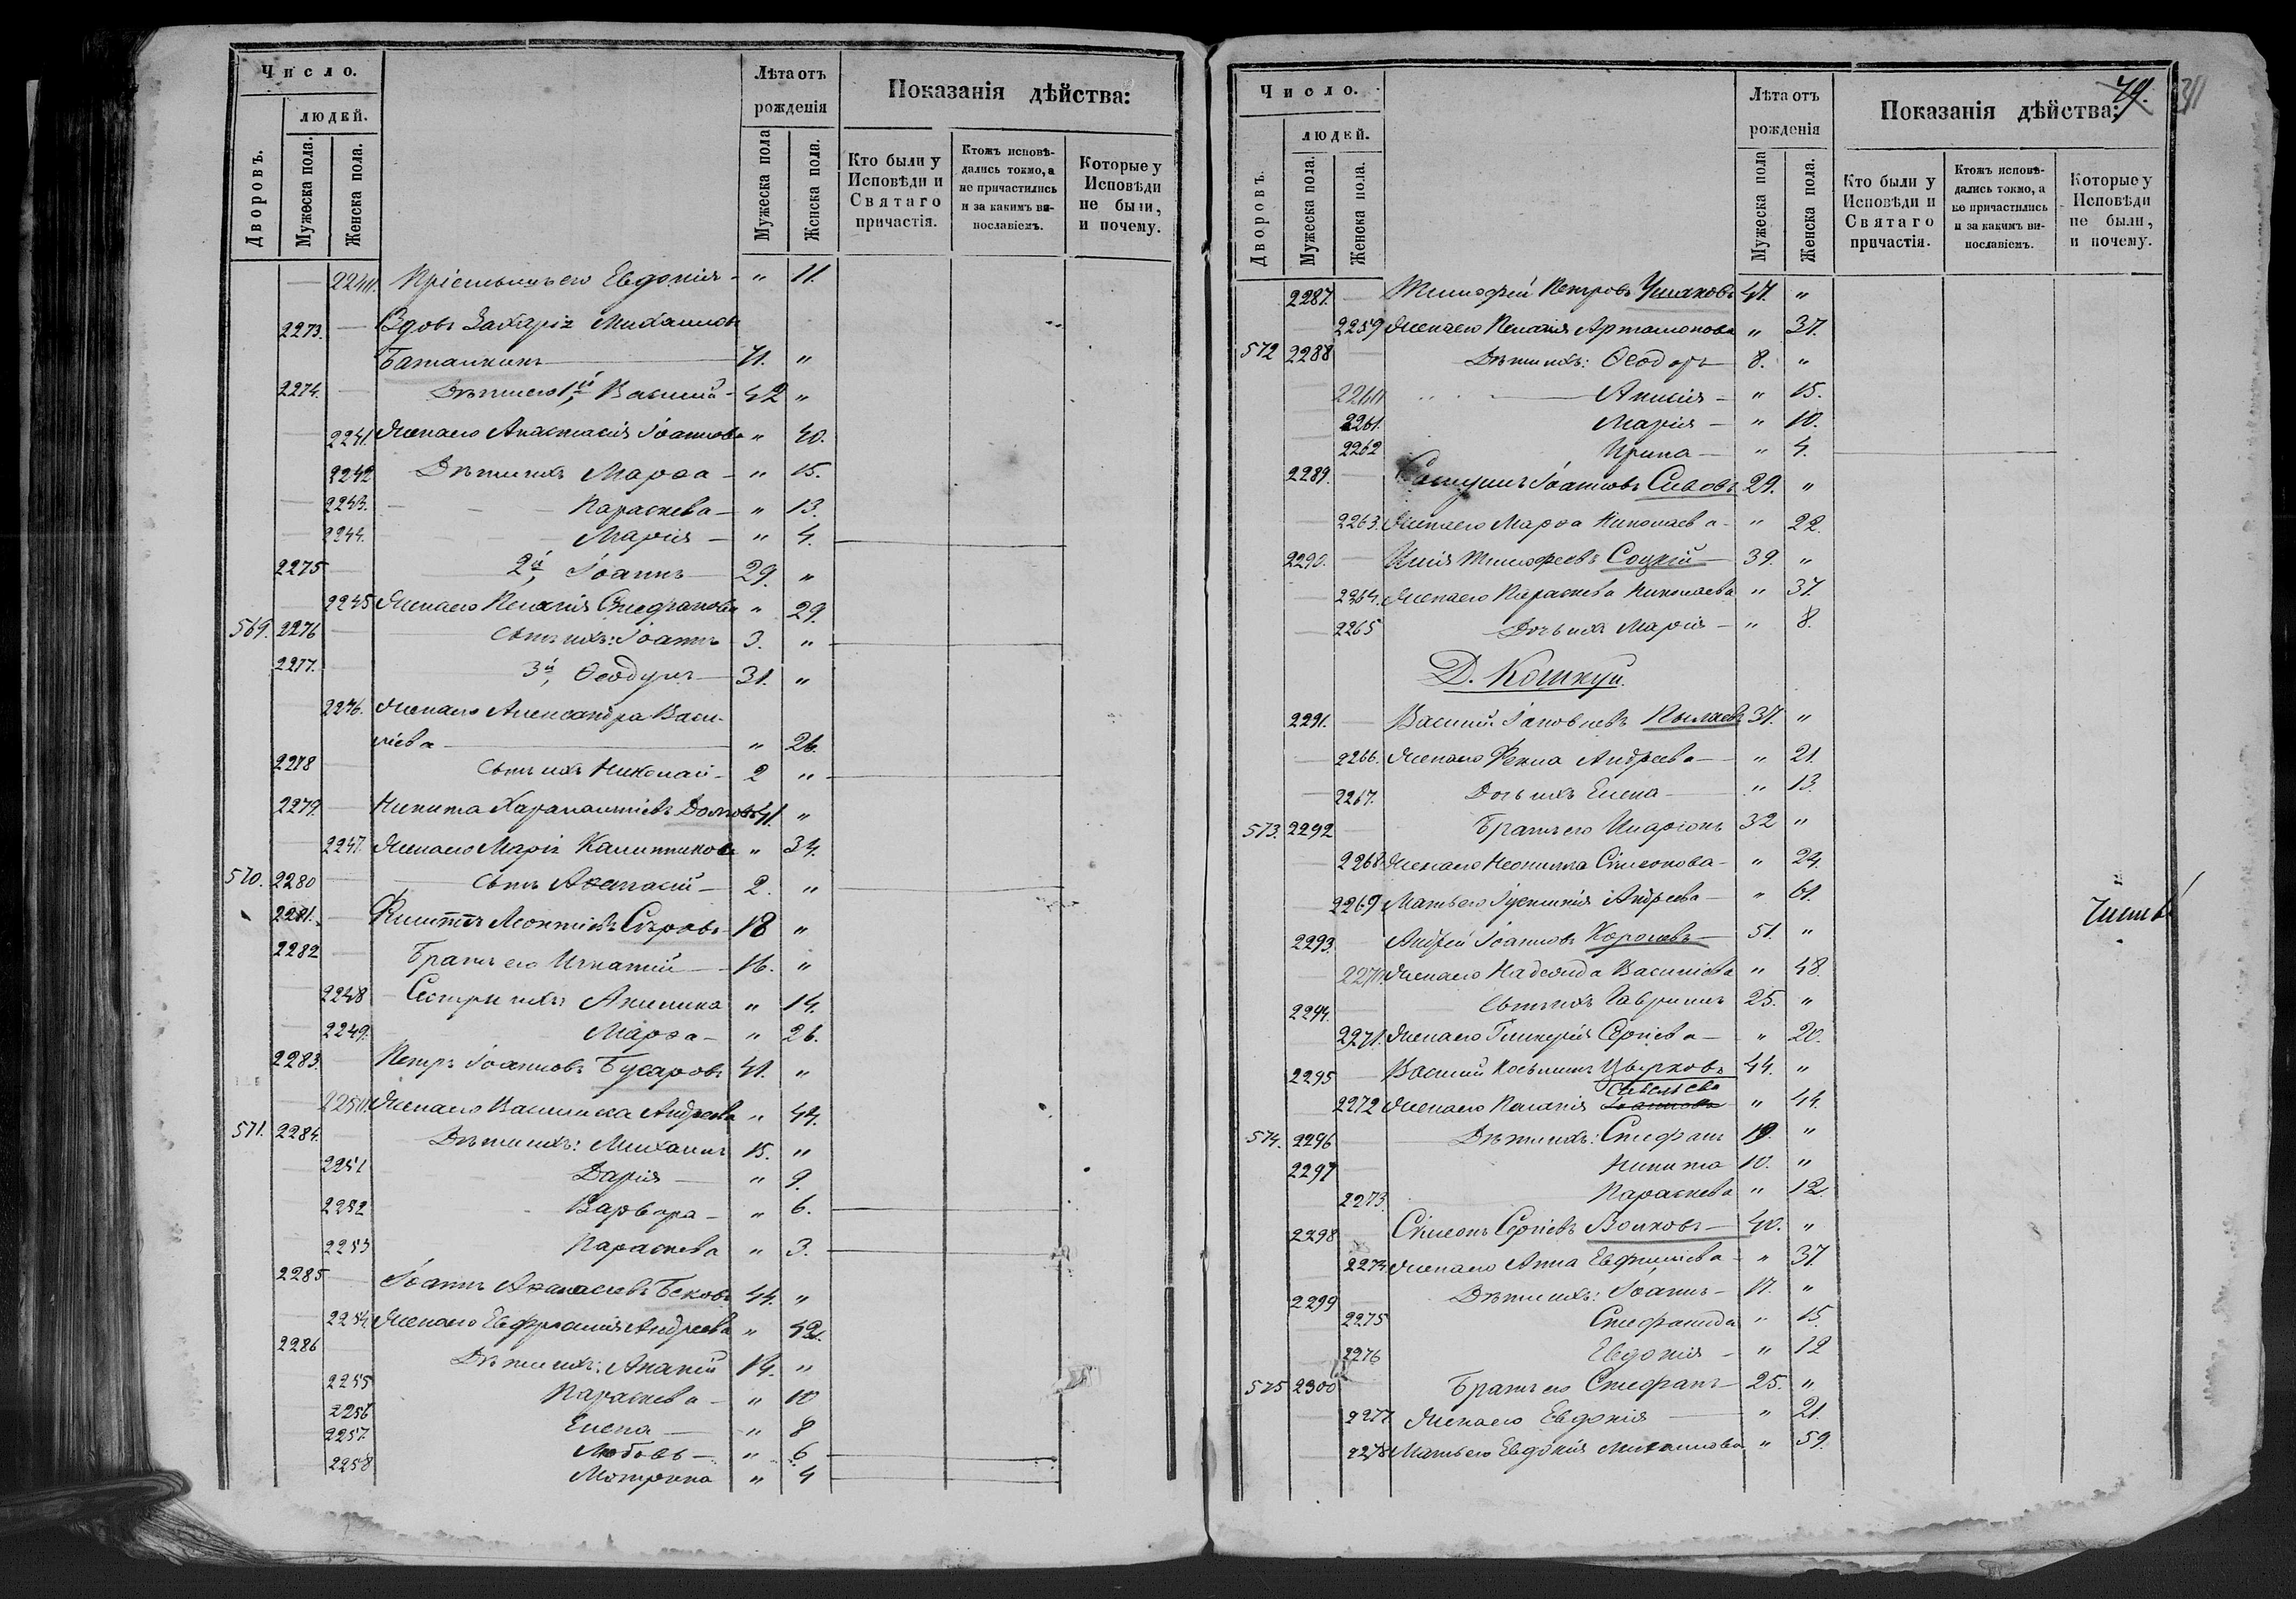 Число.
людей.
Дворовъ.
Мужеска пола.
Женска пола.
Лѣта отъ рожденія
Мужеска пола
Женска пола.
Показанія дѣйства:
Кто были у Исповѣди и Святаго причастія.
Ктожъ исповѣдались токмо, а не причастились и за какимъ винославіемъ.
Которые у Исповѣди не были, и почему.
2240. Пріемышъ его Евдокія - " 11.
2273. Вдовъ Захарія Михаиловъ
Баташкинъ 71. "
2274. Дѣти его 1й, Василій - 42 "
2241. Жена его Анастасія Іоаннова " 40.
2242 Дѣти ихъ Марѳа - " 15.
2243. Параскева - " 13.
2244. Марія - " 4.
2275 2й, Іоаннъ 29. "
2245 Жена его Пелагія Стефанова " 29.
569. 2276 Сынъ ихъ: Іоаннъ 3. "
2277. 3й, Ѳеодулъ 31. "
2246. Жена его Александра Васи-
ліева " 26.
2278 Сынъ ихъ Николай - 2 "
2279. Никита Харалампіевъ 41. "
2247. Жена его Марія " 34.
570. 2280 Сынъ Аѳанасій 2. "
2281. Филиппъ Леонтіевъ Сѣровъ 18 "
2282 Братъ его Игнатій 16. "
2248 Сестры ихъ Акилина " 14.
2249. Марѳа - " 26.
2283. Петръ Іоанновъ Бусаровъ 41. "
2250. Жена его Василиса Андреева " 44.
571. 2284. Дѣти ихъ: Михаилъ 15. "
2251 Дарія " 9.
2252 Варвара - " 6.
2253 Параскева " 3.
2285 Іоаннъ Аѳанасіевъ Бековъ 44. "
2254 Жена его Евфросинія Андреева " 42.
2286 Дѣти ихъ: Ананій 14. "
2255 Параскева - " 10
2256 Елена " 8
2257. Любовь - " 6
2258 Матрона " 4
79.
Число.
людей.
Дворовъ.
Мужеска пола.
Женска пола.
Лѣта отъ рожденія
Мужеска пола
Женска пола.
Показанія дѣйства:
Кто были у Исповѣди и Святаго причастія.
Ктожъ исповѣдались токмо, а не причастились и за какимъ винославіемъ.
Которые у Исповѣди не были, и почему.
2287. Тимофей Петровъ Ушаковъ 47. "
2259 Жена его Пелагія Артамонова " 37.
572 2288 Дѣти ихъ: Ѳеодоръ 8. "
2260 Анисія - " 15.
2261. Марія - " 10.
2262 Ирина " 4.
2289. Іоанновъ Сивовъ 29. "
2263. Жена его Марѳа Николаева - " 22.
2290. Илія Тимофеевъ Соцкій 39. "
2264. Жена его Параскева Николаева " 37.
2265 Дочь ихъ Марія - " 8.
Д. Кошкуй.
2291. Василій Іаковлевъ 37. "
2266. Жена его Фекла Андреева " 21.
2267. Дочь ихъ Елена " 13.
573. 2292 Братъ его Иларіонъ 32 "
2268 Жена его Неонила Сѵмеонова - " 24.
2269 Мать его Іустинія Андреева - " 61.
2293. Андрей Іоанновъ Королевъ 51. "
2270. Жена его Надежда Василіева " 48.
2294. Сынъ ихъ Гавріилъ 25. "
2271. Жена его Гликерія Сергіева " 20.
2295 Василій Козьминъ Цырковъ 44. "
2272 Жена его Пелагія Савельева " 44.
574. 2296 Дѣти ихъ: Стефанъ 19. "
2297 Никита 10. "
2273. Параскева " 12.
2298 Сѵмеонъ Сергіевъ Волковъ 40. "
2274 Жена его Анна Евфиміева - " 37.
2299 Дѣти ихъ: Іоаннъ - 17. "
2275 Стефанида " 15.
2276 Евдокія - " 12
575 2300 Братъ его Стефанъ 25. "
2277 Жена его Евдокія " 21.
2278 Мать его Евдокія Михаилова " 59.